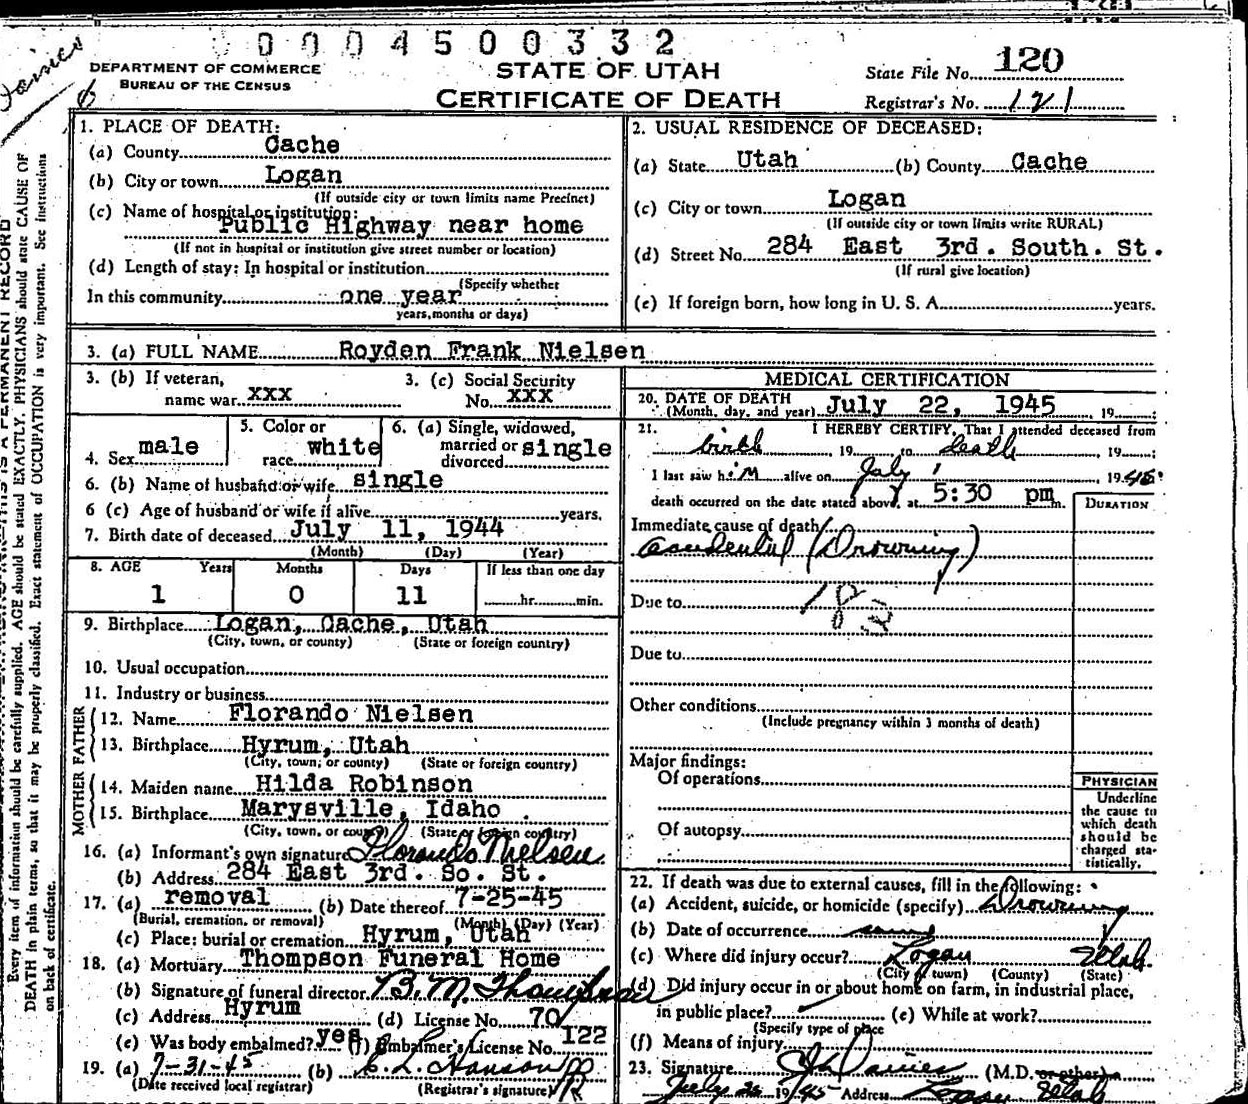 0004500332
Davies
DEPARTMENT OF COMMERCE
BUREAU OF THE CENSUS
STATE OF UTAH
CERTIFICATE OF DEATH
State File No. 120
Registrar's No. 121
Every item of information should be carefully supplied. AGE should be stated EXACTLY. PHYSICIANS should state CAUSE OF
DEATH in plain terms, so that it may be properly classified. Exact statement of OCCUPATION is very important. See Instructions
on back of certificate.
1. PLACE OF DEATH:
(a) County Cache
(b) City or town Logan
(If outside city or town limits name Precinct)
(c) Name of hospital or institution:
Public Highway near home
(If not in hospital or institution give street number or location)
(d) Length of stay: In hospital or institution
(Specify whether
In this community one year
years, months or days)
2. USUAL RESIDENCE OF DECEASED:
(a) State Utah (b) County Cache
(c) City or town Logan
(If outside city or town limits write RURAL)
(d) Street No. 284 East 3rd. South. St.
(If rural give location)
(e) If foreign born, how long in U. S. A. years.
3. (a) FULL NAME Royden Frank Nielsen
3. (b) If veteran, name war xxx
3. (c) Social Security No. xxx
4. Sex male
5. Color or race white
6. (a) Single, widowed, married or divorced single
6. (b) Name of husband or wife single
6 (c) Age of husband or wife if alive years.
7. Birth date of deceased July 11, 1944
(Month) (Day) (Year)
8. AGE Years Months Days If less than one day
1 0 11 hr. min.
9. Birthplace Logan, Cache, Utah
(City, town, or county) (State or foreign country)
10. Usual occupation
11. Industry or business
FATHER
12. Name Florando Nielsen
13. Birthplace Hyrum, Utah
(City, town, or county) (State or foreign country)
MOTHER
14. Maiden name Hilda Robinson
15. Birthplace Marysville, Idaho .
(City, town, or county) (State or foreign country)
16. (a) Informant's own signature Florando Nielsen
(b) Address 284 East 3rd. So. St.
17. (a) removal (b) Date thereof 7-25-45
(Burial, cremation, or removal) (Month) (Day) (Year)
(c) Place: burial or cremation Hyrum, Utah
18. (a) Mortuary Thompson Funeral Home
(b) Signature of funeral director B. M. Thompson
(c) Address Hyrum (d) License No. 70
(e) Was body embalmed? yes (f) Embalmer's License No. 122
19. (a) 7-31-45 (b)
(Date received local registrar) (Registrar's signature)
MEDICAL CERTIFICATION
20. DATE OF DEATH
(Month, day, and year) July 22, 1945 , 19 ;
21. I HEREBY CERTIFY, That I attended deceased from
birth , 19 to death , 19 ;
I last saw him alive on July , 1945;
death occurred on the date stated above, at 5:30 pm m.
DURATION
Immediate cause of death
accidental (Drowning)
Due to 183
Due to
Other conditions
(Include pregnancy within 3 months of death)
Major findings:
Of operations
Of autopsy
PHYSICIAN
Underline
the cause to
which death
should be
charged sta-
tistically.
22. If death was due to external causes, fill in the following:
(a) Accident, suicide, or homicide (specify) Drowning
(b) Date of occurrence same
(c) Where did injury occur? Logan Utah
(City or town) (County) (State)
(d) Did injury occur in or about home on farm, in industrial place,
in public place? (e) While at work?
(Specify type of place
(f) Means of injury
23. Signature Davies (M.D. or other)
July 1945 Address Logan Utah